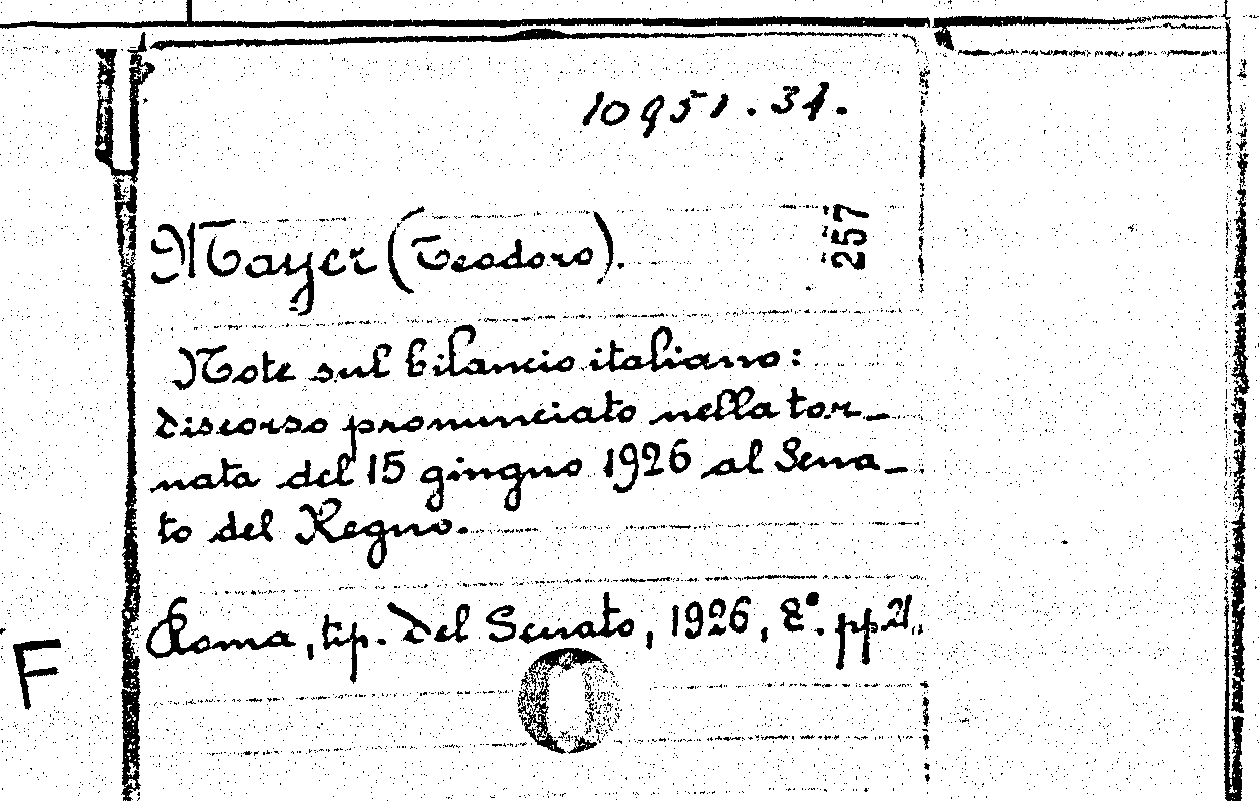 10951.34.
257
Mayer (Teodoro).
Note sul bilancio italiano:
discorso pronunciato nella tor-
nata del 15 giugno 1926 al Sena-
to del Regno.
Roma, tip. del Senato, 1926, 8°. pp. 21.
F